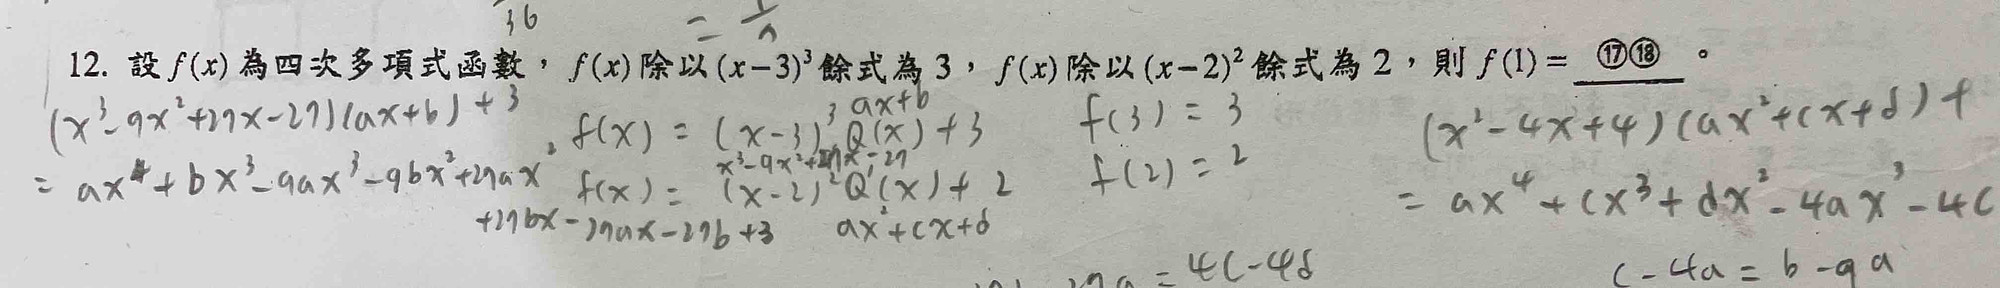 36
12. 設 f(x) 為四次多項式函數，f(x) 除以 (x−3)³ 餘式為 3，f(x) 除以 (x−2)² 餘式為 2，則 f(1) = ⑰⑱ 。
(x³-9x²+27x-27)(ax+b)+3
= ax⁴+bx³-9ax³-9bx²+27ax²
+27bx-27ax-27b+3
ax+b
f(x) = (x-3)³Q(x)+3
x³-9x²+27x-27
f(x) = (x-2)²Q'(x)+2
ax²+cx+d
f(3) = 3
f(2) = 2
(x²-4x+4)(ax²+cx+d)+
= ax⁴+cx³+dx²-4ax³-4c
= 4c-4d
c-4a = b-9a